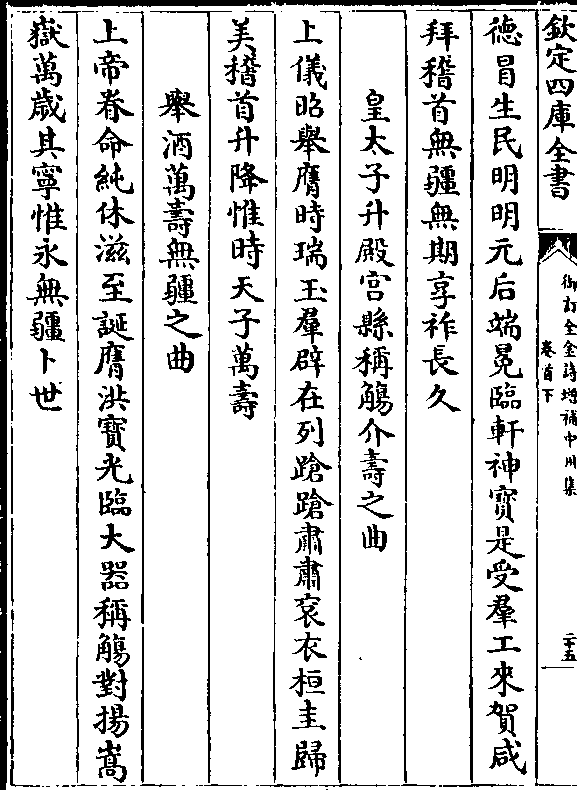 欽定四庫全書
御訂全金詩增補中州集
卷首下
二十五
德昌生民明明元后端冕臨軒神寶是受羣工來賀咸
拜稽首無疆無期享祚長久
皇太子升殿宫縣稱觴介壽之曲
上儀昭舉膺時瑞玉羣辟在列蹌蹌肅肅衮衣桓圭歸
美稽首升降惟時天子萬壽
舉酒萬壽無疆之曲
上帝眷命純休滋至誕膺洪寶光臨大器稱觴對揚嵩
嶽萬歲其寧惟永無疆卜世